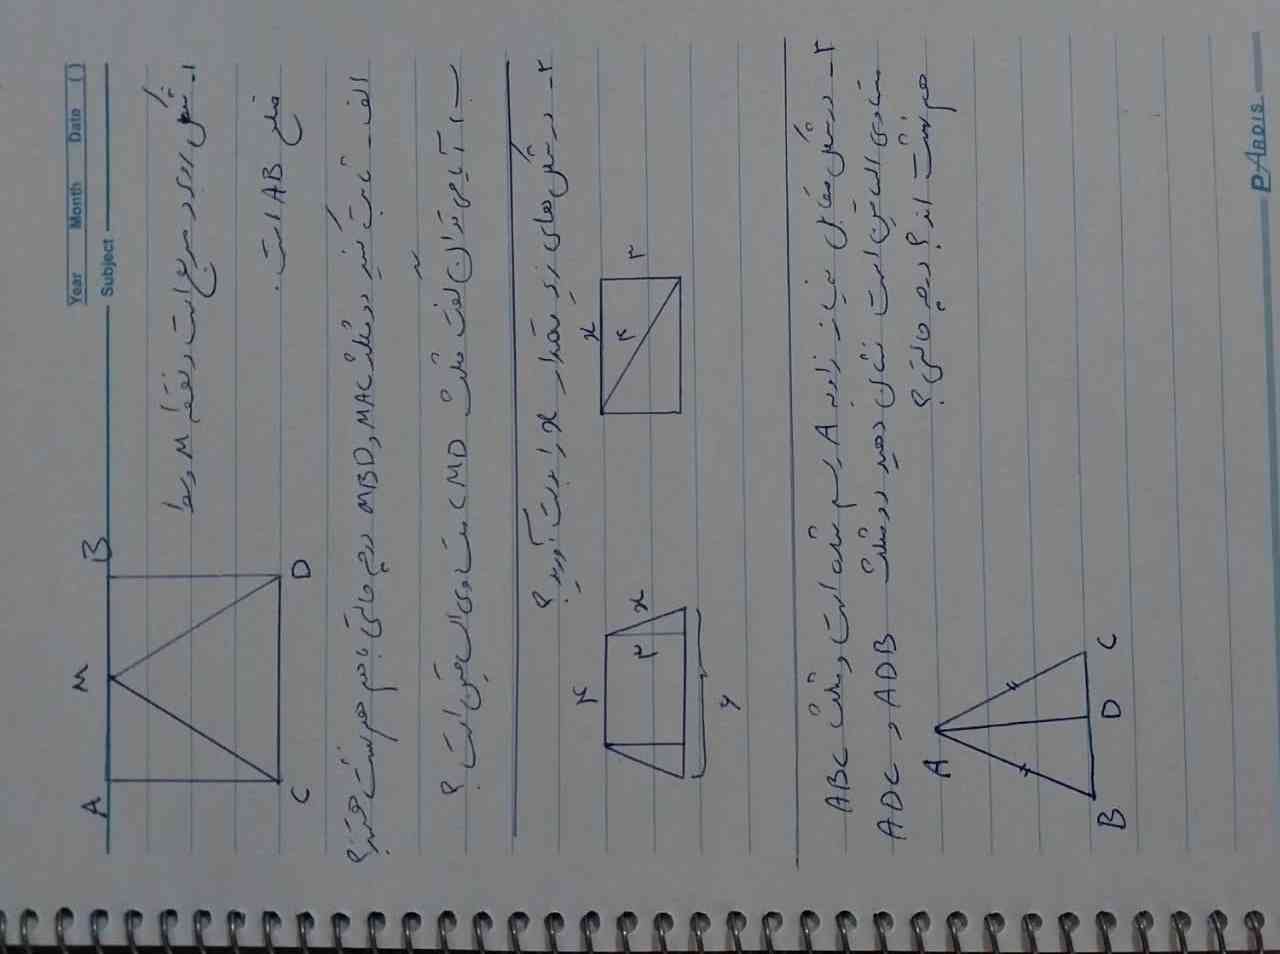 Year Month Date ( )
Subject
۱- شکل روبرو مربع است و نقطه M وسط
ضلع AB است.
A M B
C D
الف- ثابت کنید دو مثلث MAC و MBD به چه حالتی باهم همنهشت هستند؟
ب- آیا می توان گفت مثلث CMD متساوی الساقین است؟
۲- در شکل های زیر مقدار x را بدست آورید؟
۴ ۳ x ۶
x ۴
۳- در شکل مقابل نیمساز زاویه A رسم شده است و مثلث ABC
متساوی الساقین است نشان دهید دو مثلث ADB و ADC
همنهشت اند؟ به چه حالتی؟
A
B D C
PARDIS